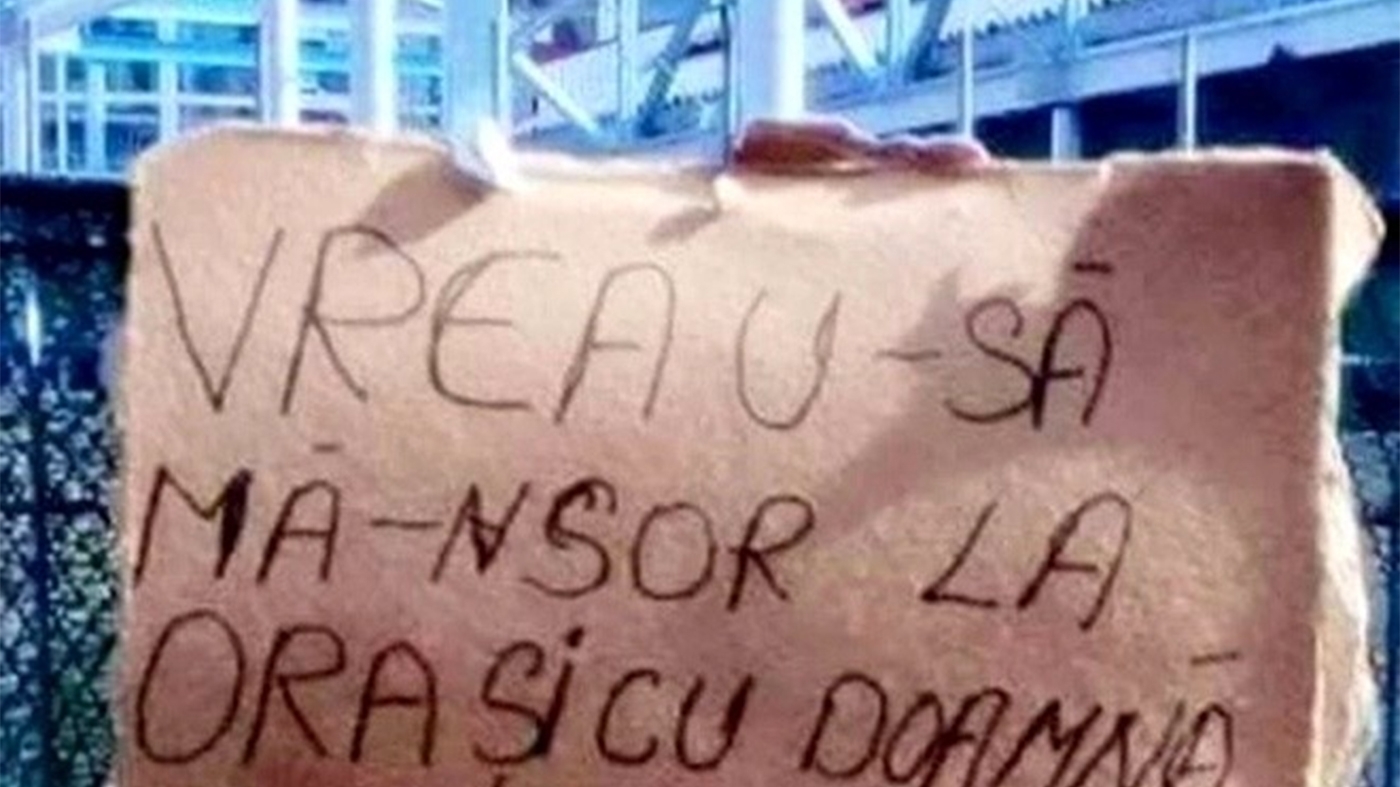 VREAU-SĂ
MĂ-NSOR LA
ORAȘiCU DOAMNĂ